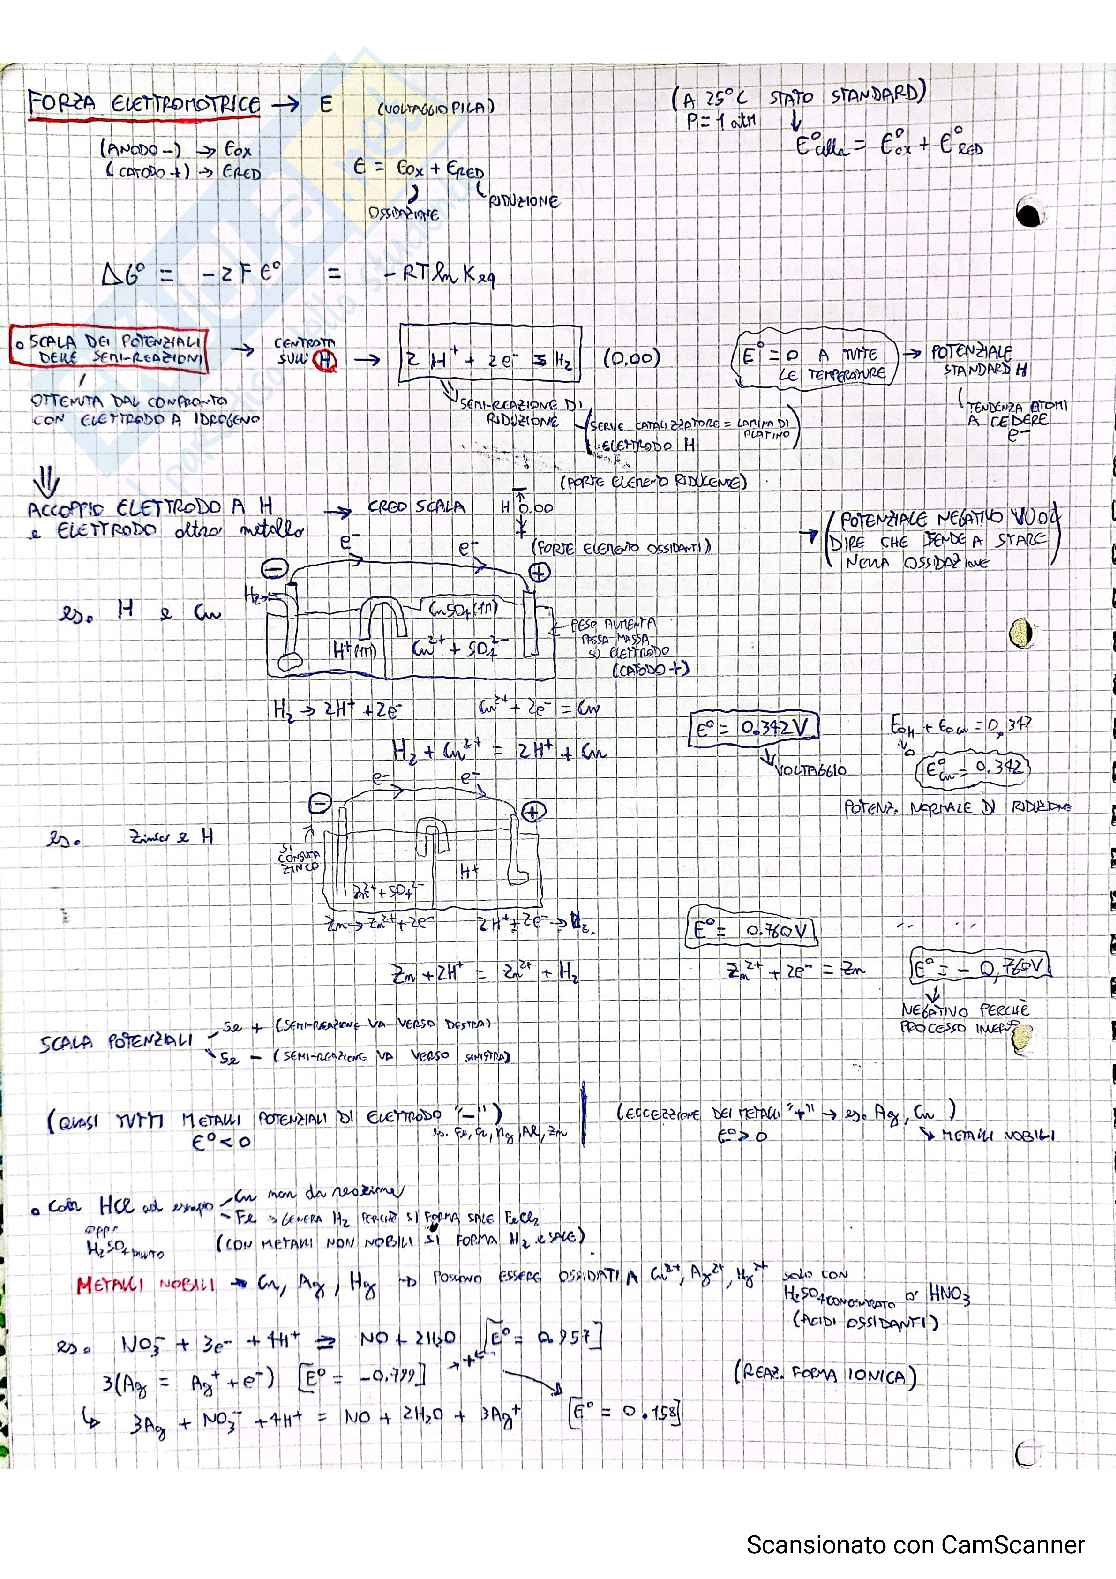 FORZA ELETTROMOTRICE → E (VOLTAGGIO PILA)
(A 25°C STATO STANDARD)
P = 1 atm
E°cella = E°ox + E°RED
(ANODO -) → Eox
(CATODO +) → ERED
E = Eox + ERED
OSSIDAZIONE
RIDUZIONE
ΔG° = -zFE° = -RT ln Keq
• SCALA DEI POTENZIALI
DELLE SEMI-REAZIONI
→ CENTRATA
SULL' H → 2H⁺ + 2e⁻ ⇆ H₂ (0,00)
E° = 0 A TUTTE
LE TEMPERATURE
→ POTENZIALE
STANDARD H
TENDENZA ATOMI
A CEDERE
e⁻
OTTENUTA DAL CONFRONTO
CON ELETTRODO A IDROGENO
SEMI-REAZIONE DI
RIDUZIONE
(SERVE CATALIZZATORE = LAMINA DI
PLATINO)
ELETTRODO H
(FORTE ELEMENTO RIDUCENTE)
ACCOPPIO ELETTRODO A H → CREO SCALA H 0,00
e ELETTRODO altro metallo
(FORTE ELEMENTO OSSIDANTI)
→ (POTENZIALE NEGATIVO VUOL
DIRE CHE TENDE A STARE
NELLA OSSIDAZIONE)
e⁻ e⁻
- +
es. H e Cu
H₂
CuSO₄(1M)
H⁺(1M) Cu²⁺ + SO₄²⁻
PESO AUMENTA
PASSA MASSA
SU ELETTRODO
(CATODO +)
H₂ → 2H⁺ + 2e⁻ Cu²⁺ + 2e⁻ = Cu
H₂ + Cu²⁺ = 2H⁺ + Cu
E° = 0.342V
VOLTAGGIO
E°H + E°Cu = 0,342
0
E°Cu = 0.342
POTENZ. NORMALE DI RIDUZIONE
e⁻ e⁻
- +
es. Zinco e H
SI
CONSUMA
ZINCO
Zn²⁺ + SO₄²⁻ H⁺
Zn → Zn²⁺ + 2e⁻ 2H⁺ + 2e⁻ → H₂
E° = 0.760V
Zn + 2H⁺ = Zn²⁺ + H₂
Zn²⁺ + 2e⁻ = Zn
E° = - 0,760V
NEGATIVO PERCHÈ
PROCESSO INVERSO
SCALA POTENZIALI
se + (SEMI-REAZIONE VA VERSO DESTRA)
se - (SEMI-REAZIONE VA VERSO SINISTRA)
(QUASI TUTTI METALLI POTENZIALI DI ELETTRODO "-")
E° < 0
(ECCEZZIONE DEI METALLI "+" → es. Ag, Cu)
E° > 0
METALLI NOBILI
• Con HCl ad esempio
Cu non dà reazione
Fe → GENERA H₂ PERCHÈ SI FORMA SALE FeCl₂
oppr
H₂SO₄ diluito
(CON METALLI NON NOBILI SI FORMA H₂ e SALE)
METALLI NOBILI → Cu, Ag, Hg → POSSONO ESSERE OSSIDATI A Cu²⁺, Ag²⁺, Hg²⁺ SOLO CON
H₂SO₄ CONCENTRATO o HNO₃
(ACIDI OSSIDANTI)
es. NO₃⁻ + 3e⁻ + 4H⁺ = NO + 2H₂O [E° = 0.957]
3(Ag = Ag⁺ + e⁻) [E° = -0.799]
(REAZ. FORMA IONICA)
↳ 3Ag + NO₃⁻ + 4H⁺ = NO + 2H₂O + 3Ag⁺ [E° = 0.158]
Scansionato con CamScanner